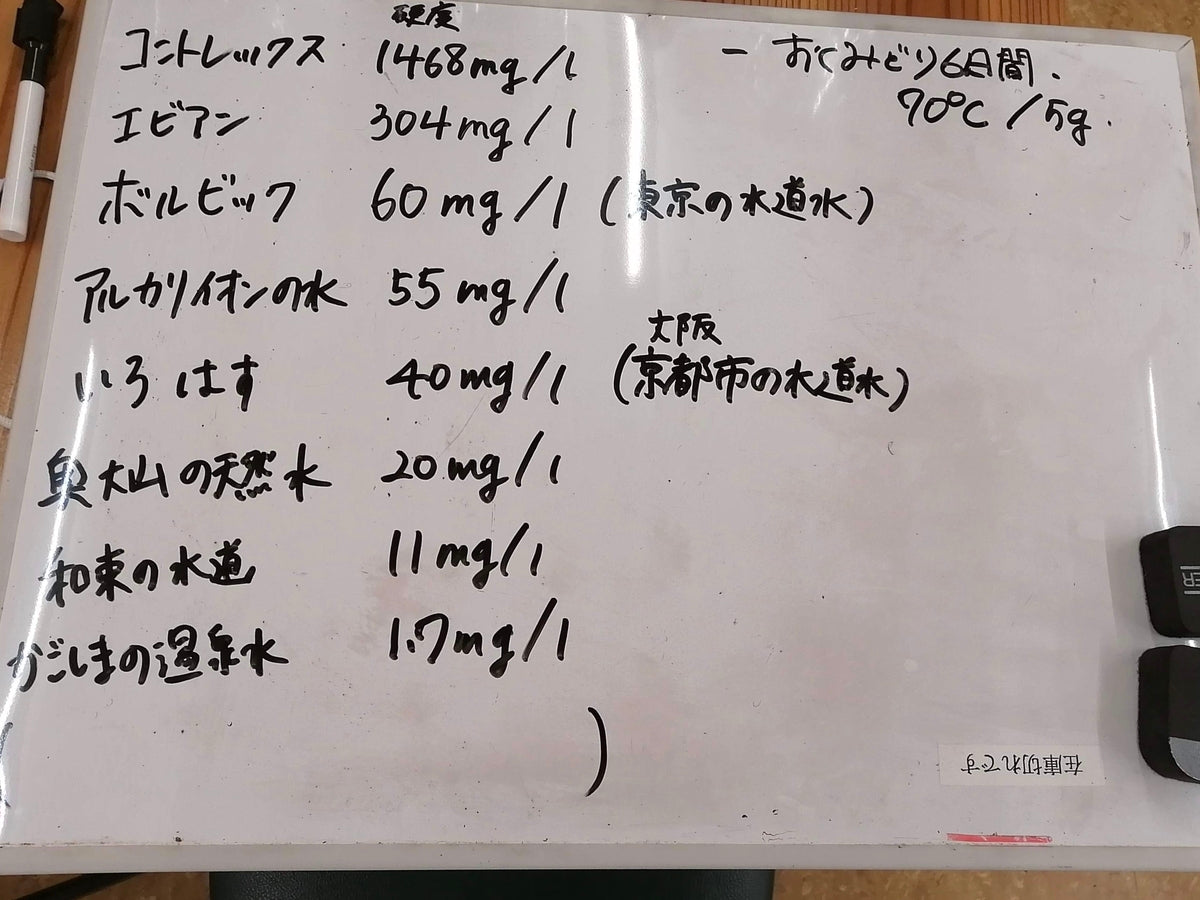 硬度
コントレックス 1468mg/l
エビアン 304mg/l
ボルビック 60mg/l (東京の水道水)
アルカリイオンの水 55mg/l
大阪
いろはす 40mg/l (京都市の水道水)
奥大山の天然水 20mg/l
和束の水道 11mg/l
かごしまの温泉水 1.7mg/l
( )
ー おくみどり6日間.
70℃/5g.
在庫切れです